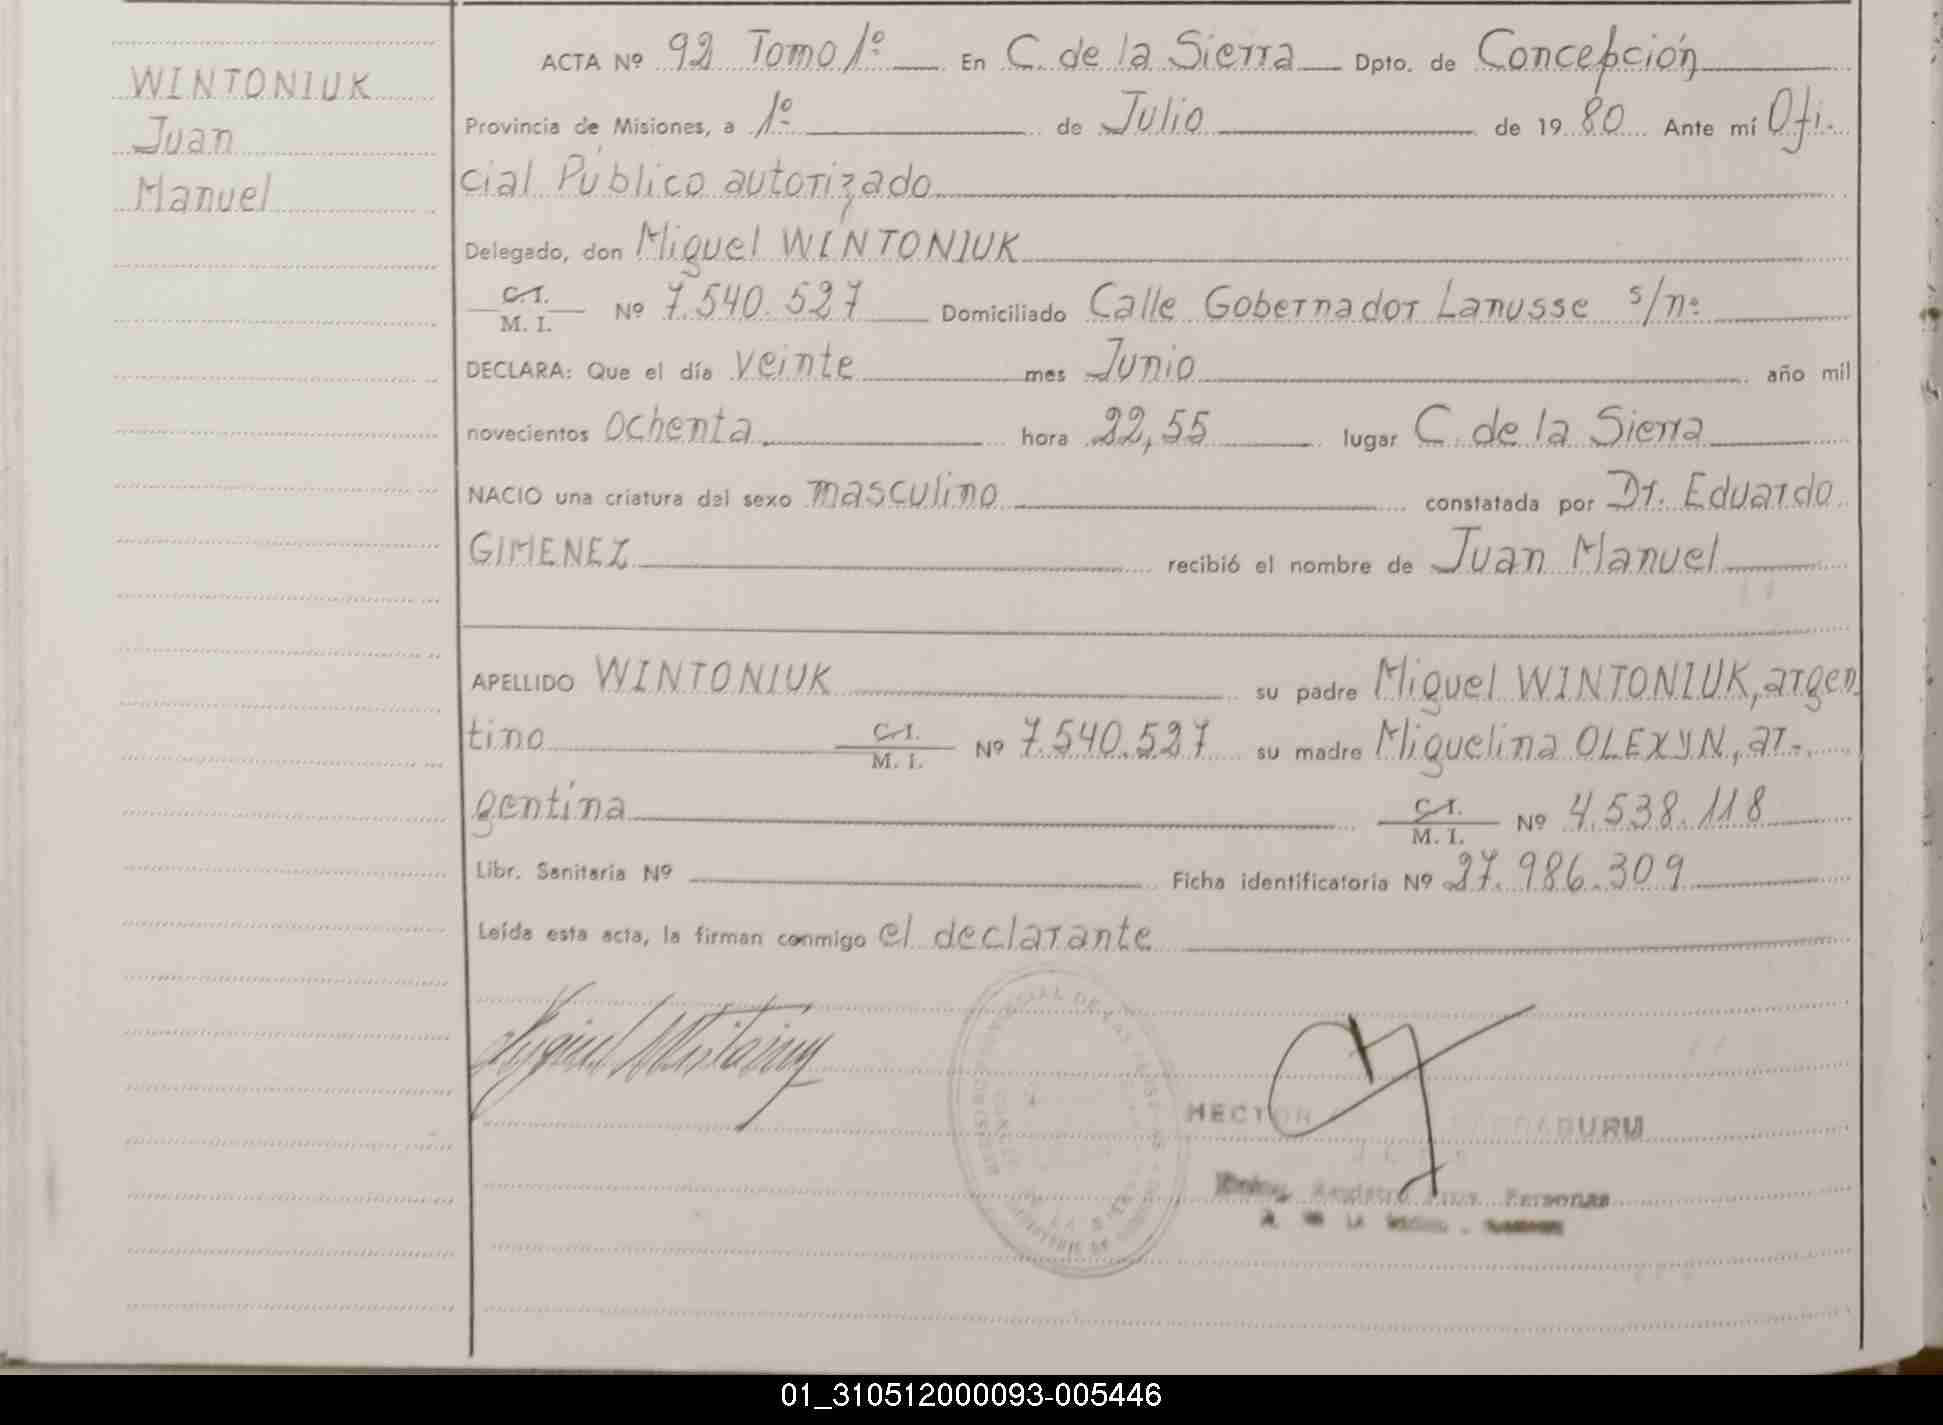 WINTONIUK
Juan
Manuel
ACTA Nº 92 Tomo 1º En C. de la Sierra Dpto. de Concepción
Provincia de Misiones, a 1º de Julio de 1980 Ante mí Ofi-
cial Público autorizado
Delegado, don Miguel WINTONIUK
C. I.
M. I. Nº 7.540.527 Domiciliado Calle Gobernador Lanusse s/nº
DECLARA: Que el día veinte mes Junio año mil
novecientos ochenta hora 22,55 lugar C. de la Sierra
NACIO una criatura del sexo masculino constatada por Dr. Eduardo
GIMENEZ recibió el nombre de Juan Manuel
APELLIDO WINTONIUK su padre Miguel WINTONIUK, argen
tino C. I.
M. I. Nº 7.540.527 su madre Miguelina OLEXYN, ar-
gentina C. I.
M. I. Nº 4.538.118
Libr. Sanitaria Nº Ficha identificatoria Nº 27.986.309
Leída esta acta, la firman conmigo el declarante
HECTOR
Registro Prov. Personas
01_310512000093-005446